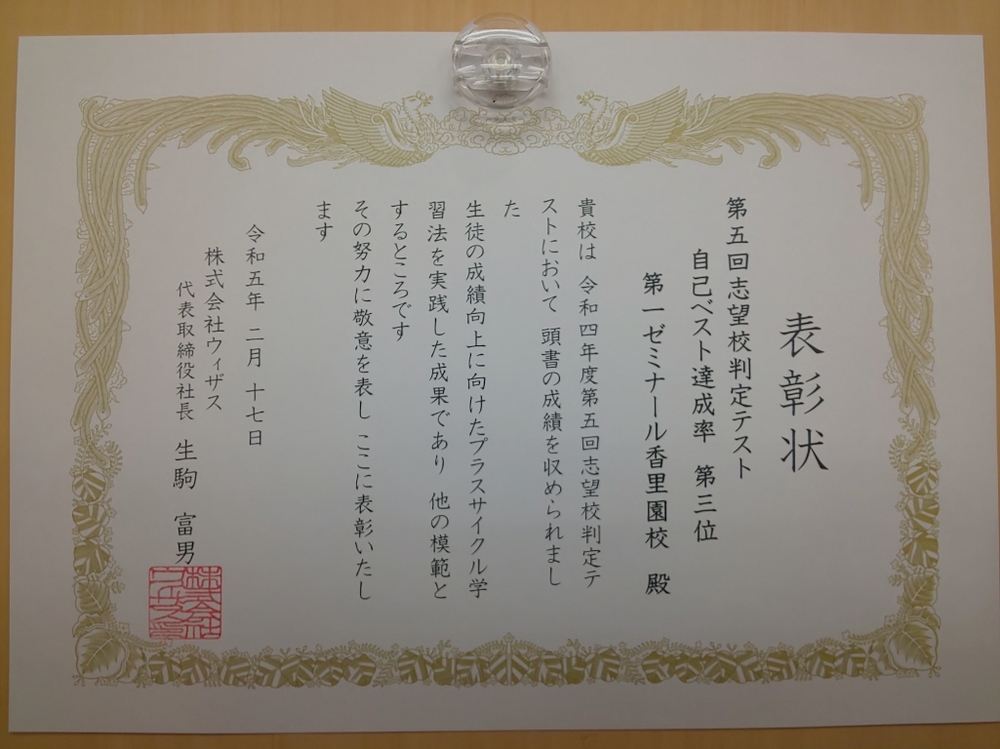 表彰状
第五回志望校判定テスト
自己ベスト達成率 第三位
第一ゼミナール香里園校 殿
貴校は 令和四年度第五回志望校判定テ
ストにおいて 頭書の成績を収められまし
た
生徒の成績向上に向けたプラスサイクル学
習法を実践した成果であり 他の模範と
するところです
その努力に敬意を表し ここに表彰いたし
ます
令和五年 二月 十七日
株式会社ウィザス
代表取締役社長 生駒 富男